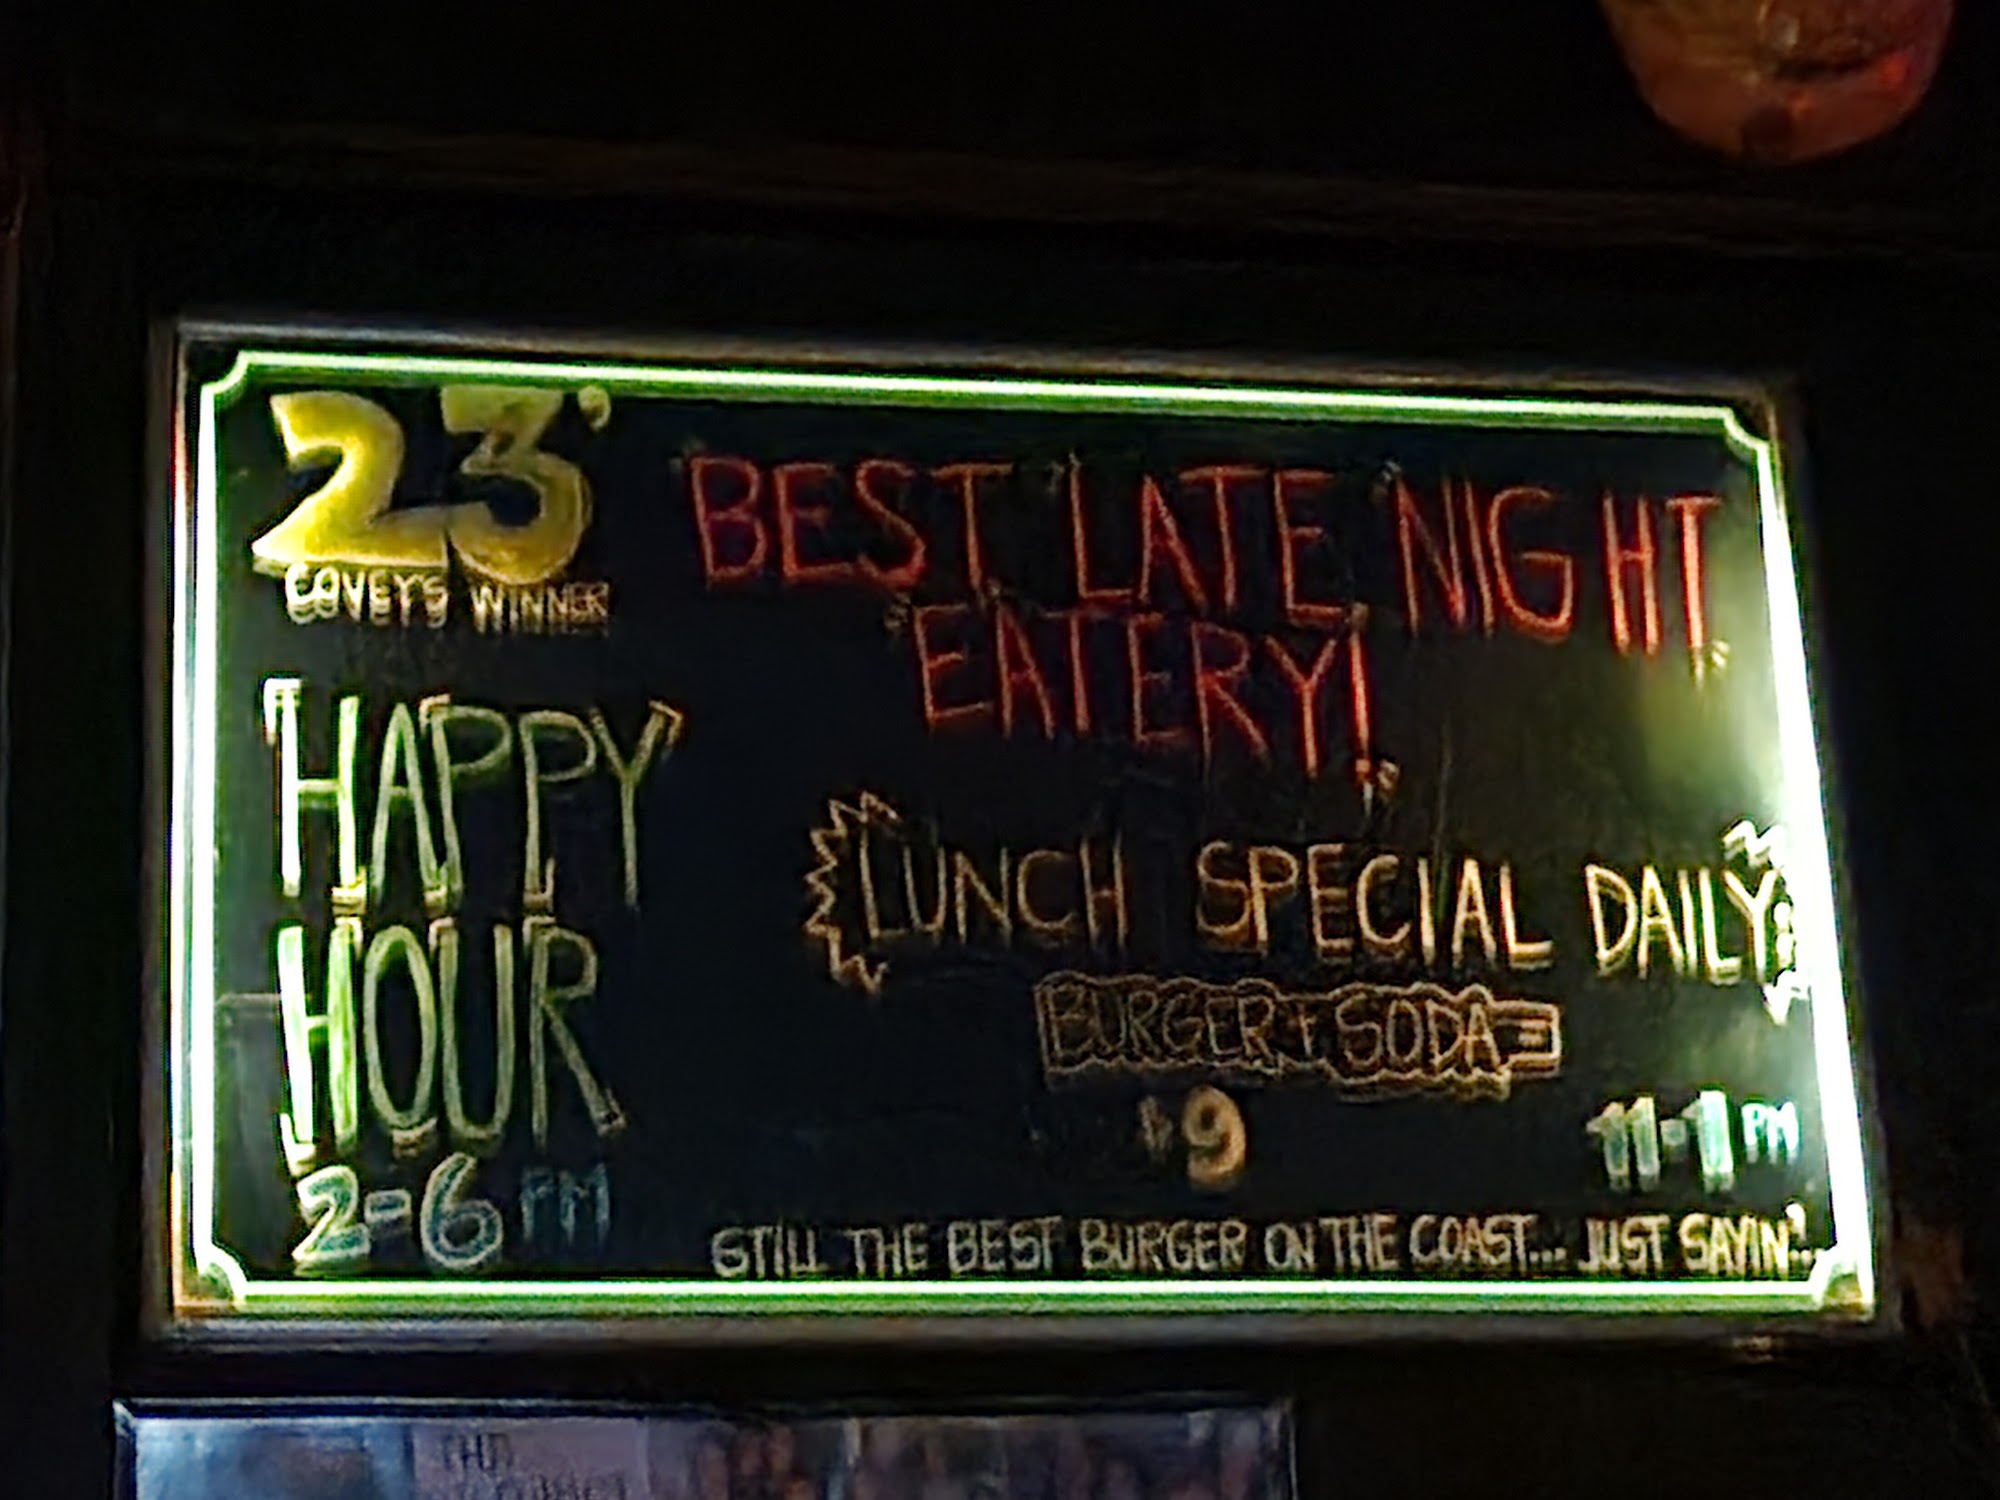 23'
COVEY'S WINNER
BEST LATE NIGHT
EATERY!
HAPPY
HOUR
2-6 PM
LUNCH SPECIAL DAILY
BURGER + SODA =
$9
11-1 PM
STILL THE BEST BURGER ON THE COAST... JUST SAYIN'..